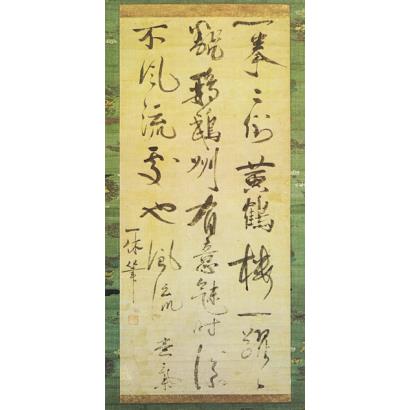 一拳〻倒黄鶴樓一趯〻
翻鸚鵡州有意氣時添
意氣
不風流処也風流
一休筆